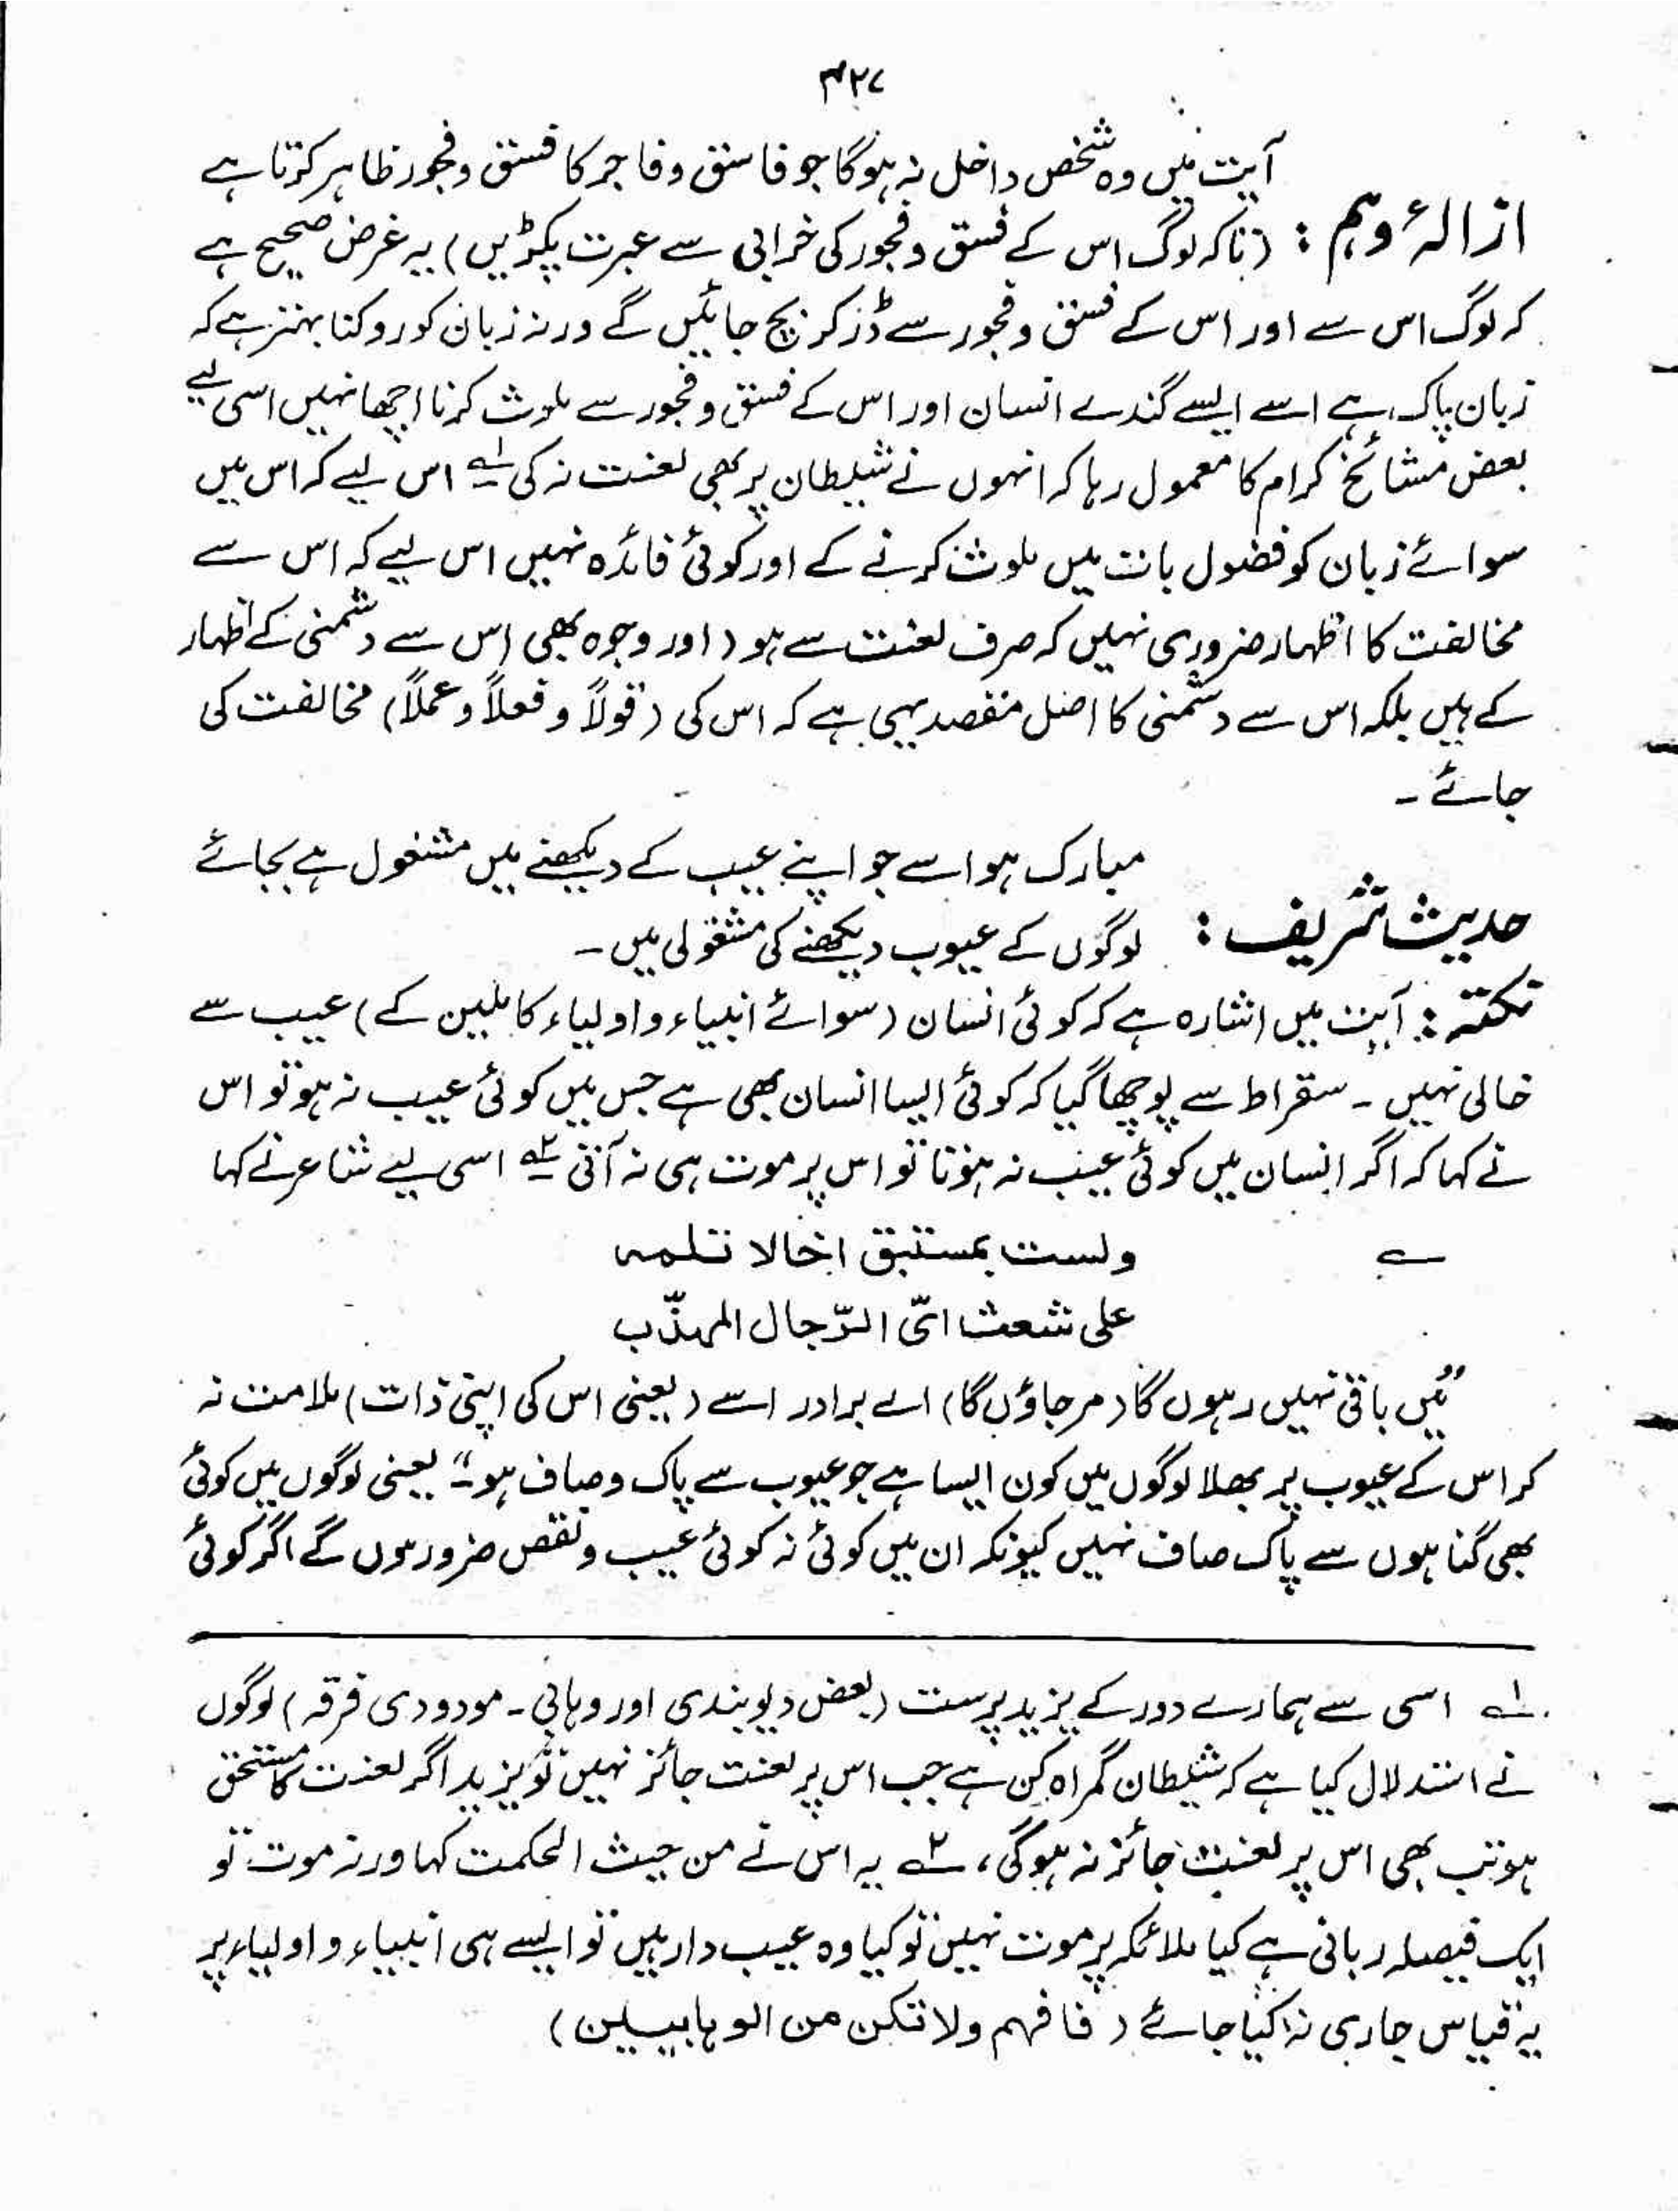 ۴۲۷
آیت میں وہ شخص داخل نہ ہوگا جو فاسق و فاجر کا فسق و فجور ظاہر کرتا ہے
ازالۂ وہم : (تاکہ لوگ اس کے فسق و فجور کی خرابی سے عبرت پکڑیں) یہ غرض صحیح ہے
کہ لوگ اس سے اور اس کے فسق و فجور سے ڈر کر بچ جائیں گے ورنہ زبان کو روکنا بہتر ہے کہ
زبان پاک ہے اسے ایسے گندے انسان اور اس کے فسق و فجور سے ملوث کرنا اچھا نہیں اسی لیے
بعض مشائخ کرام کا معمول رہا کہ انہوں نے شیطان پر بھی لعنت نہ کی ۱؎ اس لیے کہ اس میں
سوائے زبان کو فضول بات میں ملوث کرنے کے اور کوئی فائدہ نہیں اس لیے کہ اس سے
مخالفت کا اظہار ضروری نہیں کہ صرف لعنت سے ہو (اور وجوہ بھی اس سے دشمنی کے اظہار
کے ہیں بلکہ اس سے دشمنی کا اصل مقصد یہی ہے کہ اس کی (قولاً و فعلاً و عملاً) مخالفت کی
جائے ۔
مبارک ہو اسے جو اپنے عیب کے دیکھنے میں مشغول ہے بجائے
حدیث شریف : لوگوں کے عیوب دیکھنے کی مشغولی میں ۔
نکتہ : آیت میں اشارہ ہے کہ کوئی انسان (سوائے انبیاء و اولیاء کاملین کے) عیب سے
خالی نہیں ۔ سقراط سے پوچھا گیا کہ کوئی ایسا انسان بھی ہے جس میں کوئی عیب نہ ہو تو اس
نے کہا کہ اگر انسان میں کوئی عیب نہ ہوتا تو اس پر موت ہی نہ آتی ۲؎ اسی لیے شاعر نے کہا
؎ ولست بمستبق اخالا تلمہ
علی شعث ایّ الرّجال المہذّب
”میں باقی نہیں رہوں گا (مر جاؤں گا) اے برادر اسے (یعنی اس کی اپنی ذات) ملامت نہ
کر اس کے عیوب پر بھلا لوگوں میں کون ایسا ہے جو عیوب سے پاک و صاف ہو۔“ یعنی لوگوں میں کوئی
بھی گناہوں سے پاک صاف نہیں کیونکہ ان میں کوئی نہ کوئی عیب و نقص ضرور ہوں گے اگر کوئی
۱؎ اسی سے ہمارے دور کے یزید پرست (بعض دیوبندی اور وہابی ۔ مودودی فرقہ) لوگوں
نے استدلال کیا ہے کہ شیطان گمراہ کن ہے جب اس پر لعنت جائز نہیں تو یزید اگر لعنت کا مستحق
ہو تب بھی اس پر لعنت جائز نہ ہوگی، ۲؎ یہ اس نے من حیث الحکمت کہا ورنہ موت تو
ایک فیصلہ ربانی ہے کیا ملائکہ پر موت نہیں تو کیا وہ عیب دار ہیں تو ایسے ہی انبیاء و اولیاء پر
یہ قیاس جاری نہ کیا جائے (فافہم ولا تکن من الوہابیین)